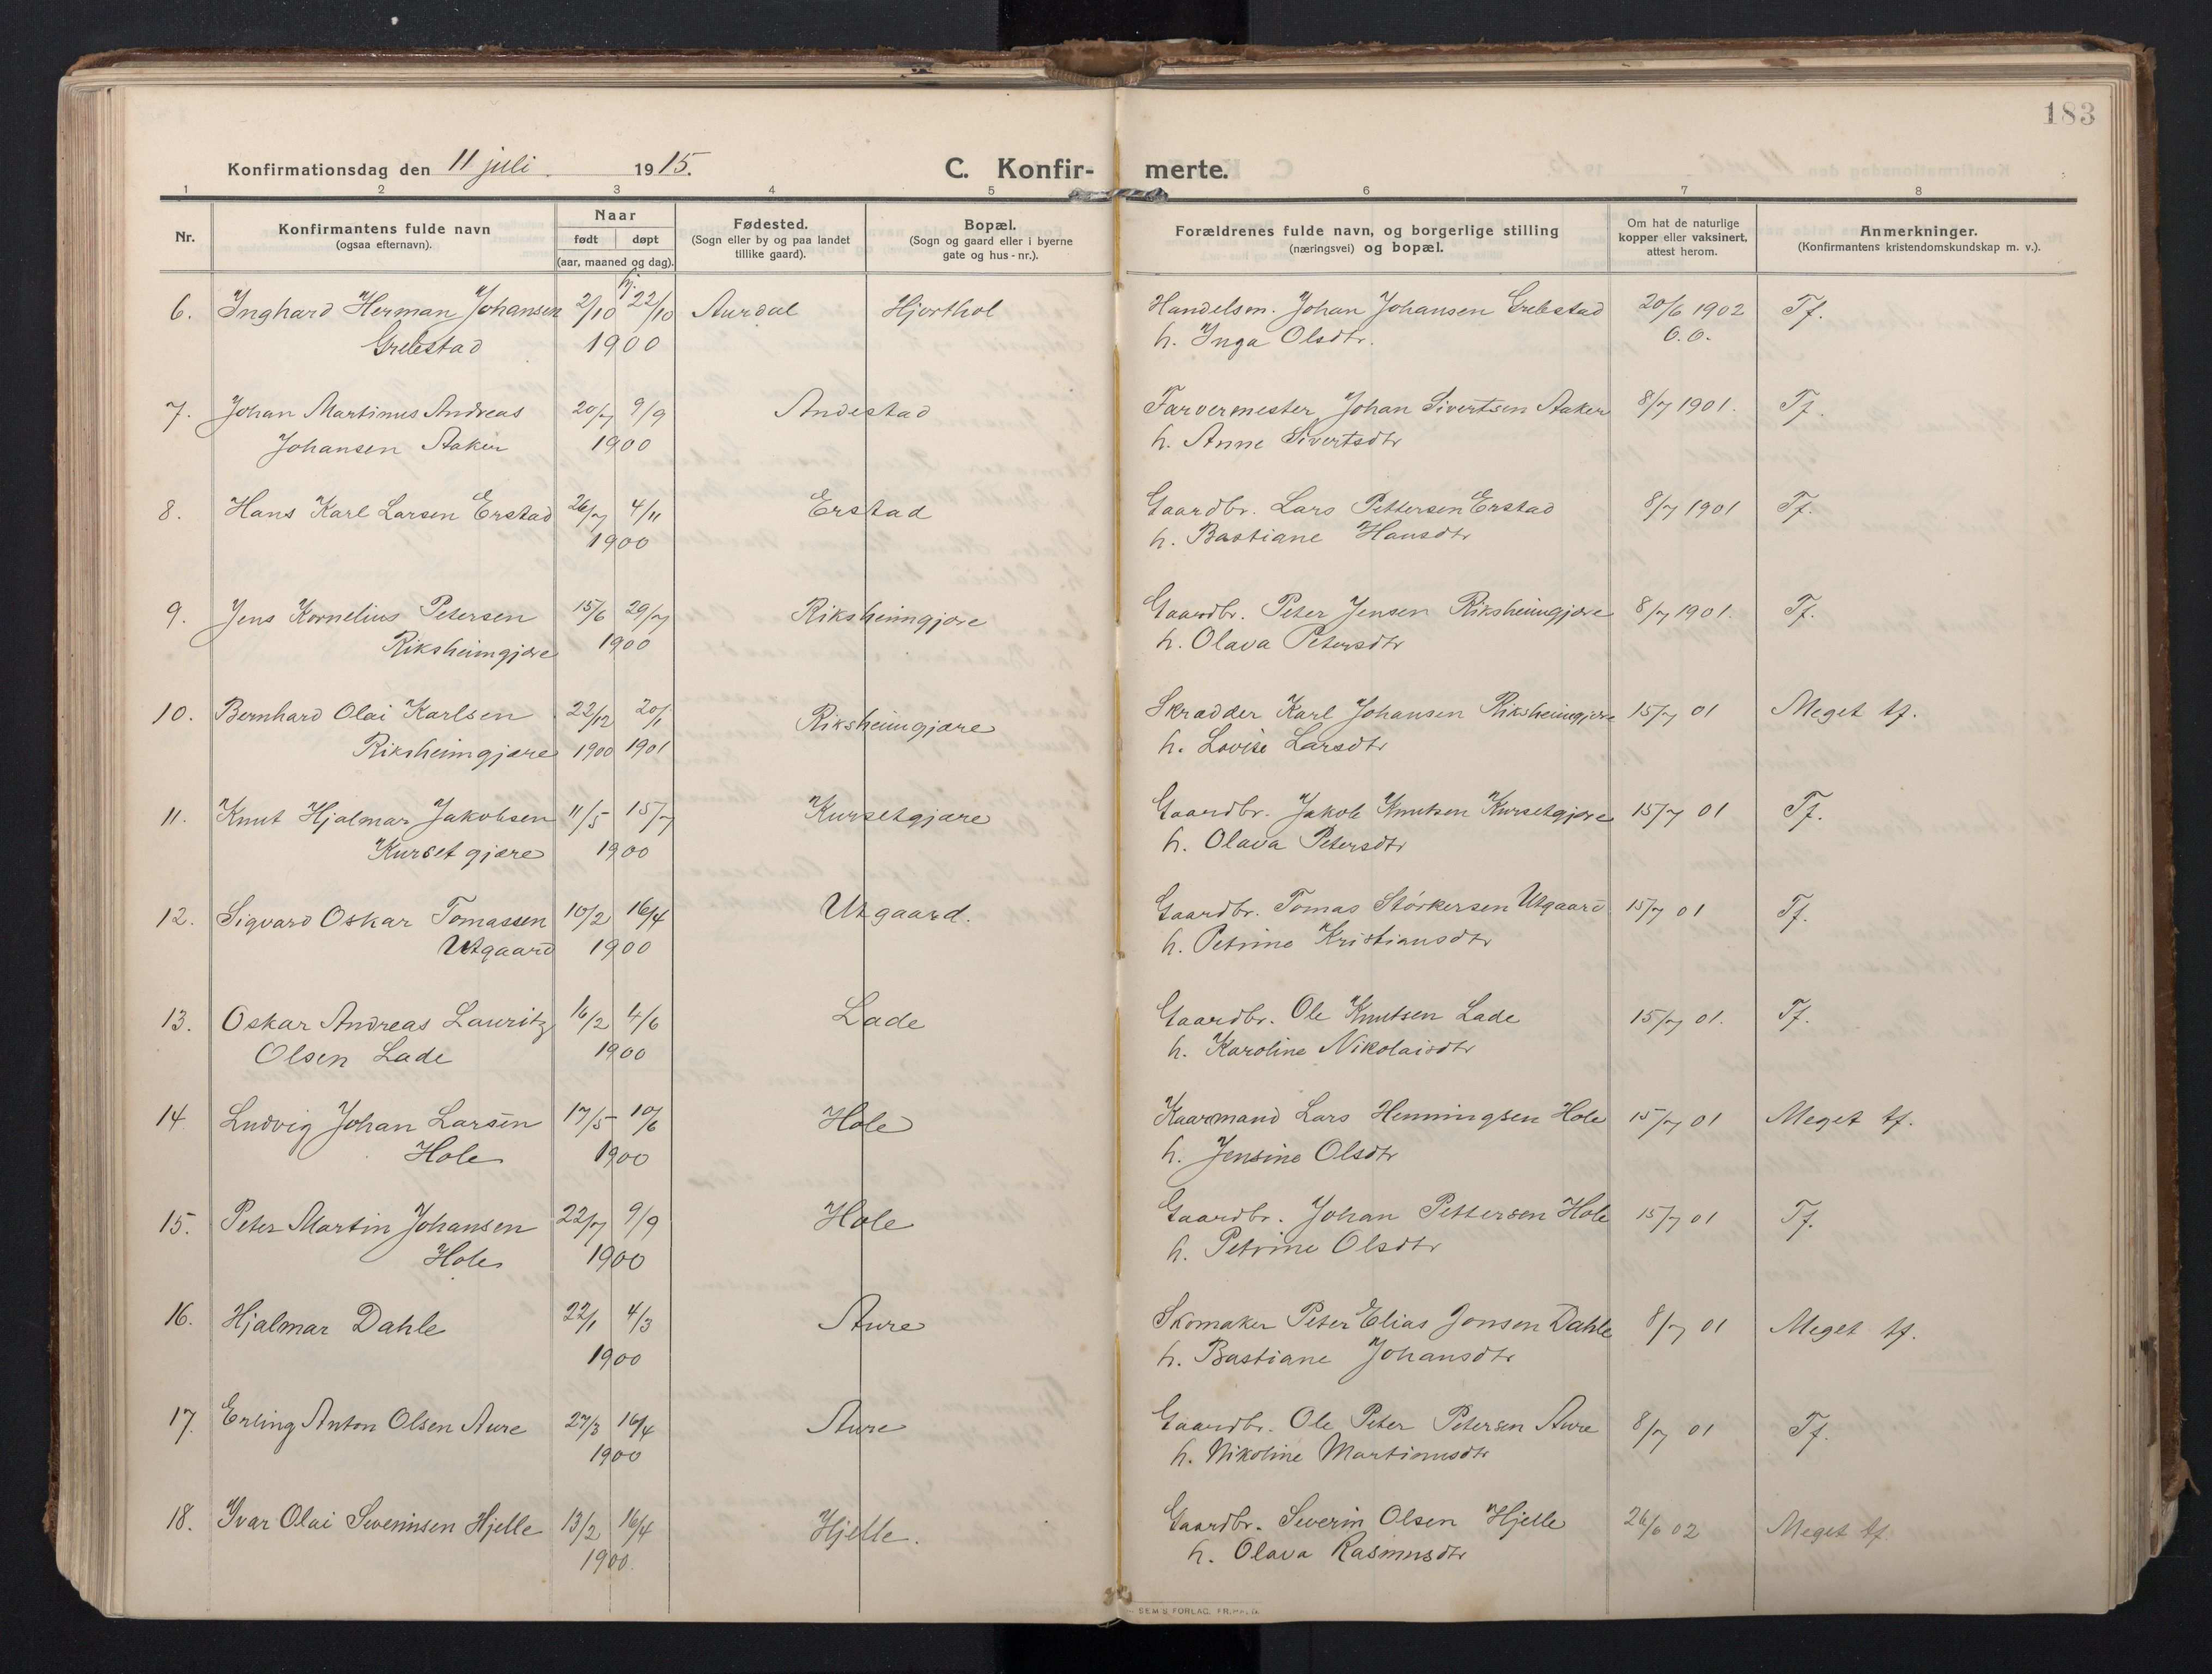 183
Konfirmationsdag den 11 juli 1915. C. Konfirmerte.
1 2 3 4 5 6 7 8
Nr. Konfirmantens fulde navn (ogsaa efternavn). Naar født døpt (aar, maaned og dag). Fødested. (Sogn eller by og paa landet tillike gaard). Bopæl. (Sogn og gaard eller i byerne gate og hus-nr.). Forældrenes fulde navn, og borgerlige stilling (næringsvei) og bopæl. Om hat de naturlige kopper eller vaksinert, attest herom. Anmerkninger. (Konfirmantens kristendomskundskap m. v.).
hj.
6. Inghard Herman Johansen 2/10 22/10 Aurdal Hjorthol Handelsm. Johan Johansen Grebstad 20/6 1902 Tf.
Grebstad 1900 h. Inga Olsdtr. O.O.
7. Johan Martinus Andreas 20/7 9/9 Andestad Farvermester Johan Sivertsen Aaker 8/7 1901. Tf.
Johansen Aaker 1900 h. Anne Sivertsdtr
8. Hans Karl Larsen Erstad 26/7 4/11 Erstad Gaardbr. Lars Pettersen Erstad 8/7 1901 Tf.
1900 h. Bastiane Hansdtr
9. Jens Kornelius Petersen 15/6 29/7 Riksheimgjære Gaardbr. Peter Jensen Riksheimgjære 8/7 1901. Tf.
Riksheimgjære 1900 h. Olava Petersdtr
10. Bernhard Olai Karlsen 22/12 20/1 Riksheimgjære Skrædder Karl Johansen Riksheimgjære 15/7 01 Meget tf.
Riksheimgjære 1900 1901 h. Lovise Larsdtr
11. Knut Hjalmar Jakobsen 11/5 15/7 Kursetgjære Gaardbr. Jakob Knutsen Kursetgjære 15/7 01 Tf.
Kursetgjære 1900 h. Olava Petersdtr
12. Sigvard Oskar Tomassen 10/2 16/4 Utgaard. Gaardbr. Tomas Størkersen Utgaard 15/7 01 Tf.
Utgaard 1900 h. Petrine Kristiansdtr
13. Oskar Andreas Lauritz 16/2 4/6 Lade Gaardbr. Ole Knutsen Lade 15/7 01. Tf.
Olsen Lade 1900 h. Karoline Nikolaisdtr
14. Ludvig Johan Larsen 17/5 10/6 Hole Kaarmand Lars Henningsen Hole 15/7 01 Meget tf.
Hole 1900 h. Jensine Olsdtr
15. Peter Martin Johansen 22/7 9/9 Hole Gaardbr. Johan Pettersen Hole 15/7 01 Tf.
Hole 1900 h. Petrine Olsdtr
16. Hjalmar Dahle 22/1 4/3 Aure Skomaker Peter Elias Jonsen Dahle 8/7 01 Meget tf.
1900 h. Bastiane Johansdtr
17. Erling Anton Olsen Aure 27/3 16/4 Aure Gaardbr. Ole Peter Petersen Aure 8/7 01 Tf.
1900 h. Nikoline Martinusdtr
18. Ivar Olai Severinsen Hjelle 13/2 16/4 Hjelle. Gaardbr. Severin Olsen Hjelle 26/6 02 Meget tf.
1900. h. Olava Rasmusdtr
SEM'S FORLAG, FR.HALD.